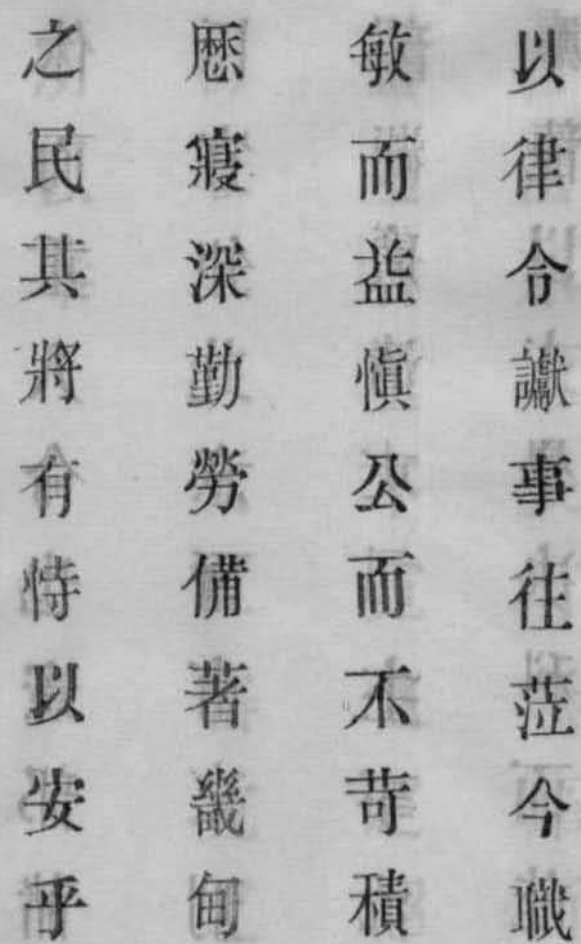 以律令讞事往蒞今職
敏而益慎公而不苛積
歷寖深勤勞備著畿甸
之民其將有恃以安乎